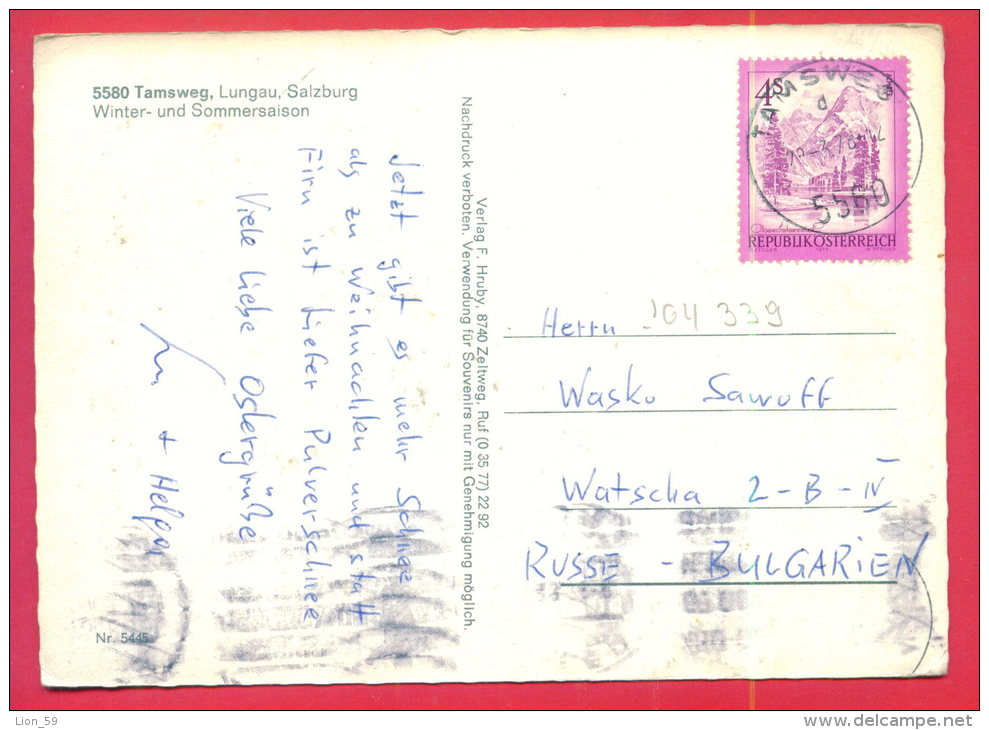 5580 Tamsweg, Lungau, Salzburg
Winter- und Sommersaison
Jetzt gibt es mehr Schnee
als zu Weihnachten und statt
Firn ist tiefer Pulverschnee
Viele liebe Ostergrüße
+ Helga
Nr. 5445
Verlag F. Hruby, 8740 Zeltweg, Ruf (0 35 77) 22 92
Nachdruck verboten. Verwendung für Souvenirs nur mit Genehmigung möglich.
4S
REPUBLIK ÖSTERREICH
TAMSWEG
d
5580
104 339
Herrn
Wasko Sawoff
Watscha 2-B-IV
RUSSE - BULGARIEN
Lion_59
www.delcampe.net